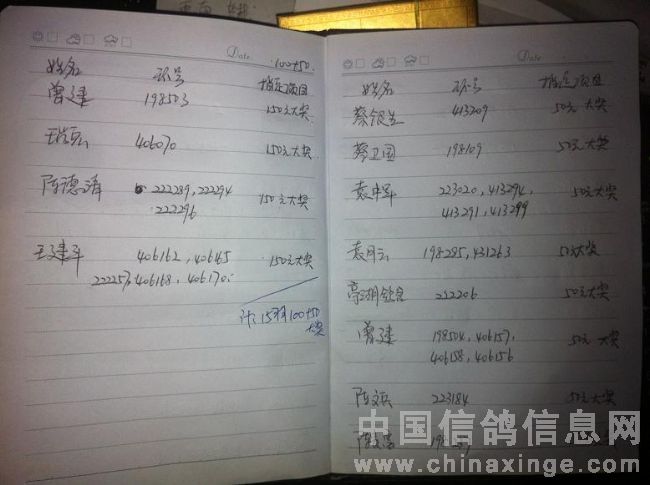 Date
100+50
姓名 环号 指定项目
曾建 198503 150元大奖
406070 150元大奖
陈德清 222289,222294 150元大奖
222296
王建平 406162,406165 150元大奖
222257,406168,406170
计:15羽100+50
大奖
Date
姓名 环号 指定项目
蔡银兰 413209 50元大奖
蔡卫国 198109 50元大奖
袁中华 223020,413294, 50元大奖
413291,413299
袁月 198285,431263 50元大奖
222206 50元大奖
曾建 198504,406157, 50元大奖
406158,406156
陈文兵 223184 50元大奖
中国信鸽信息网
www.chinaxinge.com